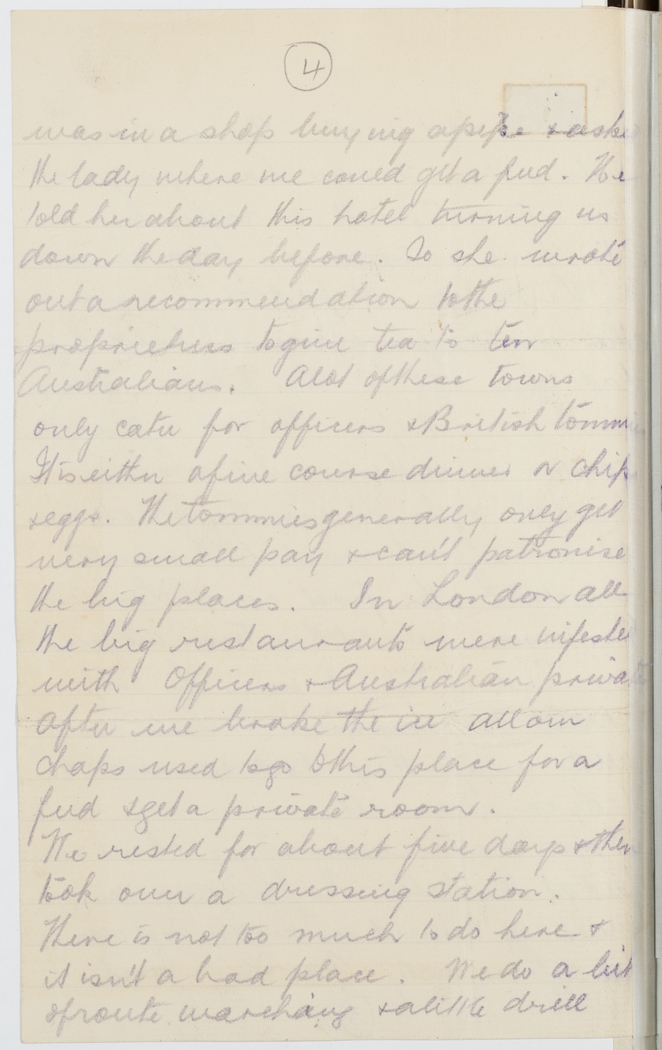 4
was in a shop buying a pipe & aske
the lady where we could get a feed. We
told her about this hotel turning us
down the day before. So she wrote
out a recommendation to the
proprietress to give tea to ten
Australians. Alot of these towns
only cater for officers & British tommi
It is either a five course dinner or chip
& eggs. The tommies generally only get
very small pay & can't patronise
the big places. In London all
the big restaurants were infeste
with Officers & Australian priva
after we broke the ice all our
chaps used to go to this place for a
feed & get a private room.
We rested for about five days & then
took over a dressing station.
There is not too much to do here &
it isn't a bad place. We do a bit
of route marching & a little drill